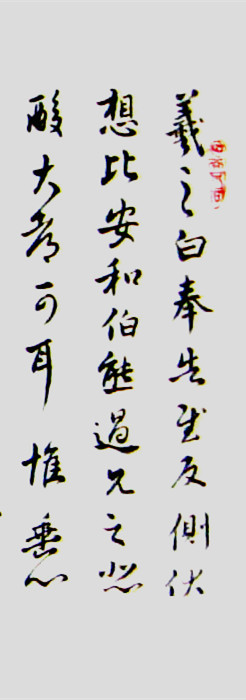 羲之白奉告反側伏
想比安和伯熊過見之悲
酸大可耳惟垂心